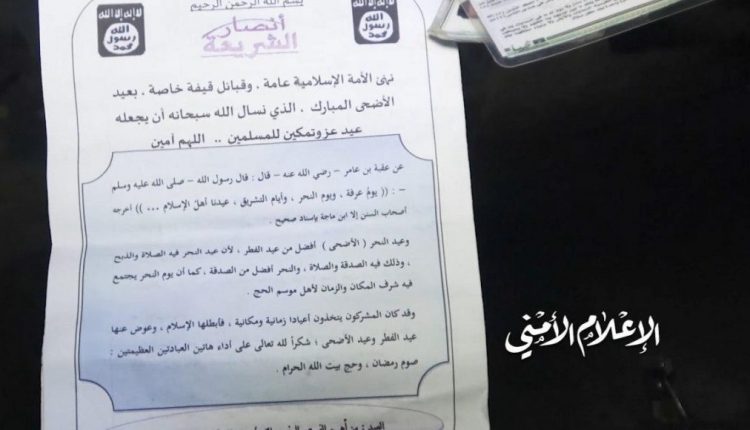 بسم الله الرحمن الرحيم
لا إله إلا الله
الله
رسول
محمد
أنصار
الشريعة
لا إله إلا الله
الله
رسول
محمد
نهنئ الأمة الإسلامية عامة . وقبائل قيفة خاصة . بعيد
الأضحى المبارك . الذي نسال الله سبحانه أن يجعله
عيد عز وتمكين للمسلمين .. اللهم آمين
عن عقبة بن عامر – رضي الله عنه – قال : قال رسول الله – صلى الله عليه وسلم
– : (( يومُ عرفة ، ويوم النحر ، وأيام التشريق ، عيدنا أهل الإسلام ... )) أخرجه
أصحاب السنن إلا ابن ماجة بإسناد صحيح .
وعيد النحر ( الأضحى ) أفضل من عيد الفطر ، لأن عيد النحر فيه الصلاة والذبح
، وذلك فيه الصدقة والصلاة ، والنحر أفضل من الصدقة ، كما أن يوم النحر يجتمع
فيه شرف المكان والزمان لأهل موسم الحج .
وقد كان المشركون يتخذون أعيادا زمانية ومكانية ، فأبطلها الإسلام ، وعوض عنها
عيد الفطر وعيد الأضحى ؛ شكراً لله تعالى على أداء هاتين العبادتين العظيمتين :
صوم رمضان ، وحج بيت الله الحرام .
الإعلام الأمني